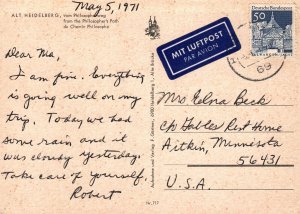 May 5, 1971
ALT HEIDELBERG, vom Philosophenweg
from the Philosopher's Path
du Chemin Philosophe
Dear Ma,
I am fine. Everything
is going well on my
trip. Today we had
some rain and it
was cloudy yesterday.
Take care of yourself.
Robert
Nr. 717
MIT LUFTPOST
PAR AVION
50
Deutsche Bundespost
69
Mrs Edna Beck
c/o Gables Rest Home
Aitkin, Minnesota
56431
U.S.A.